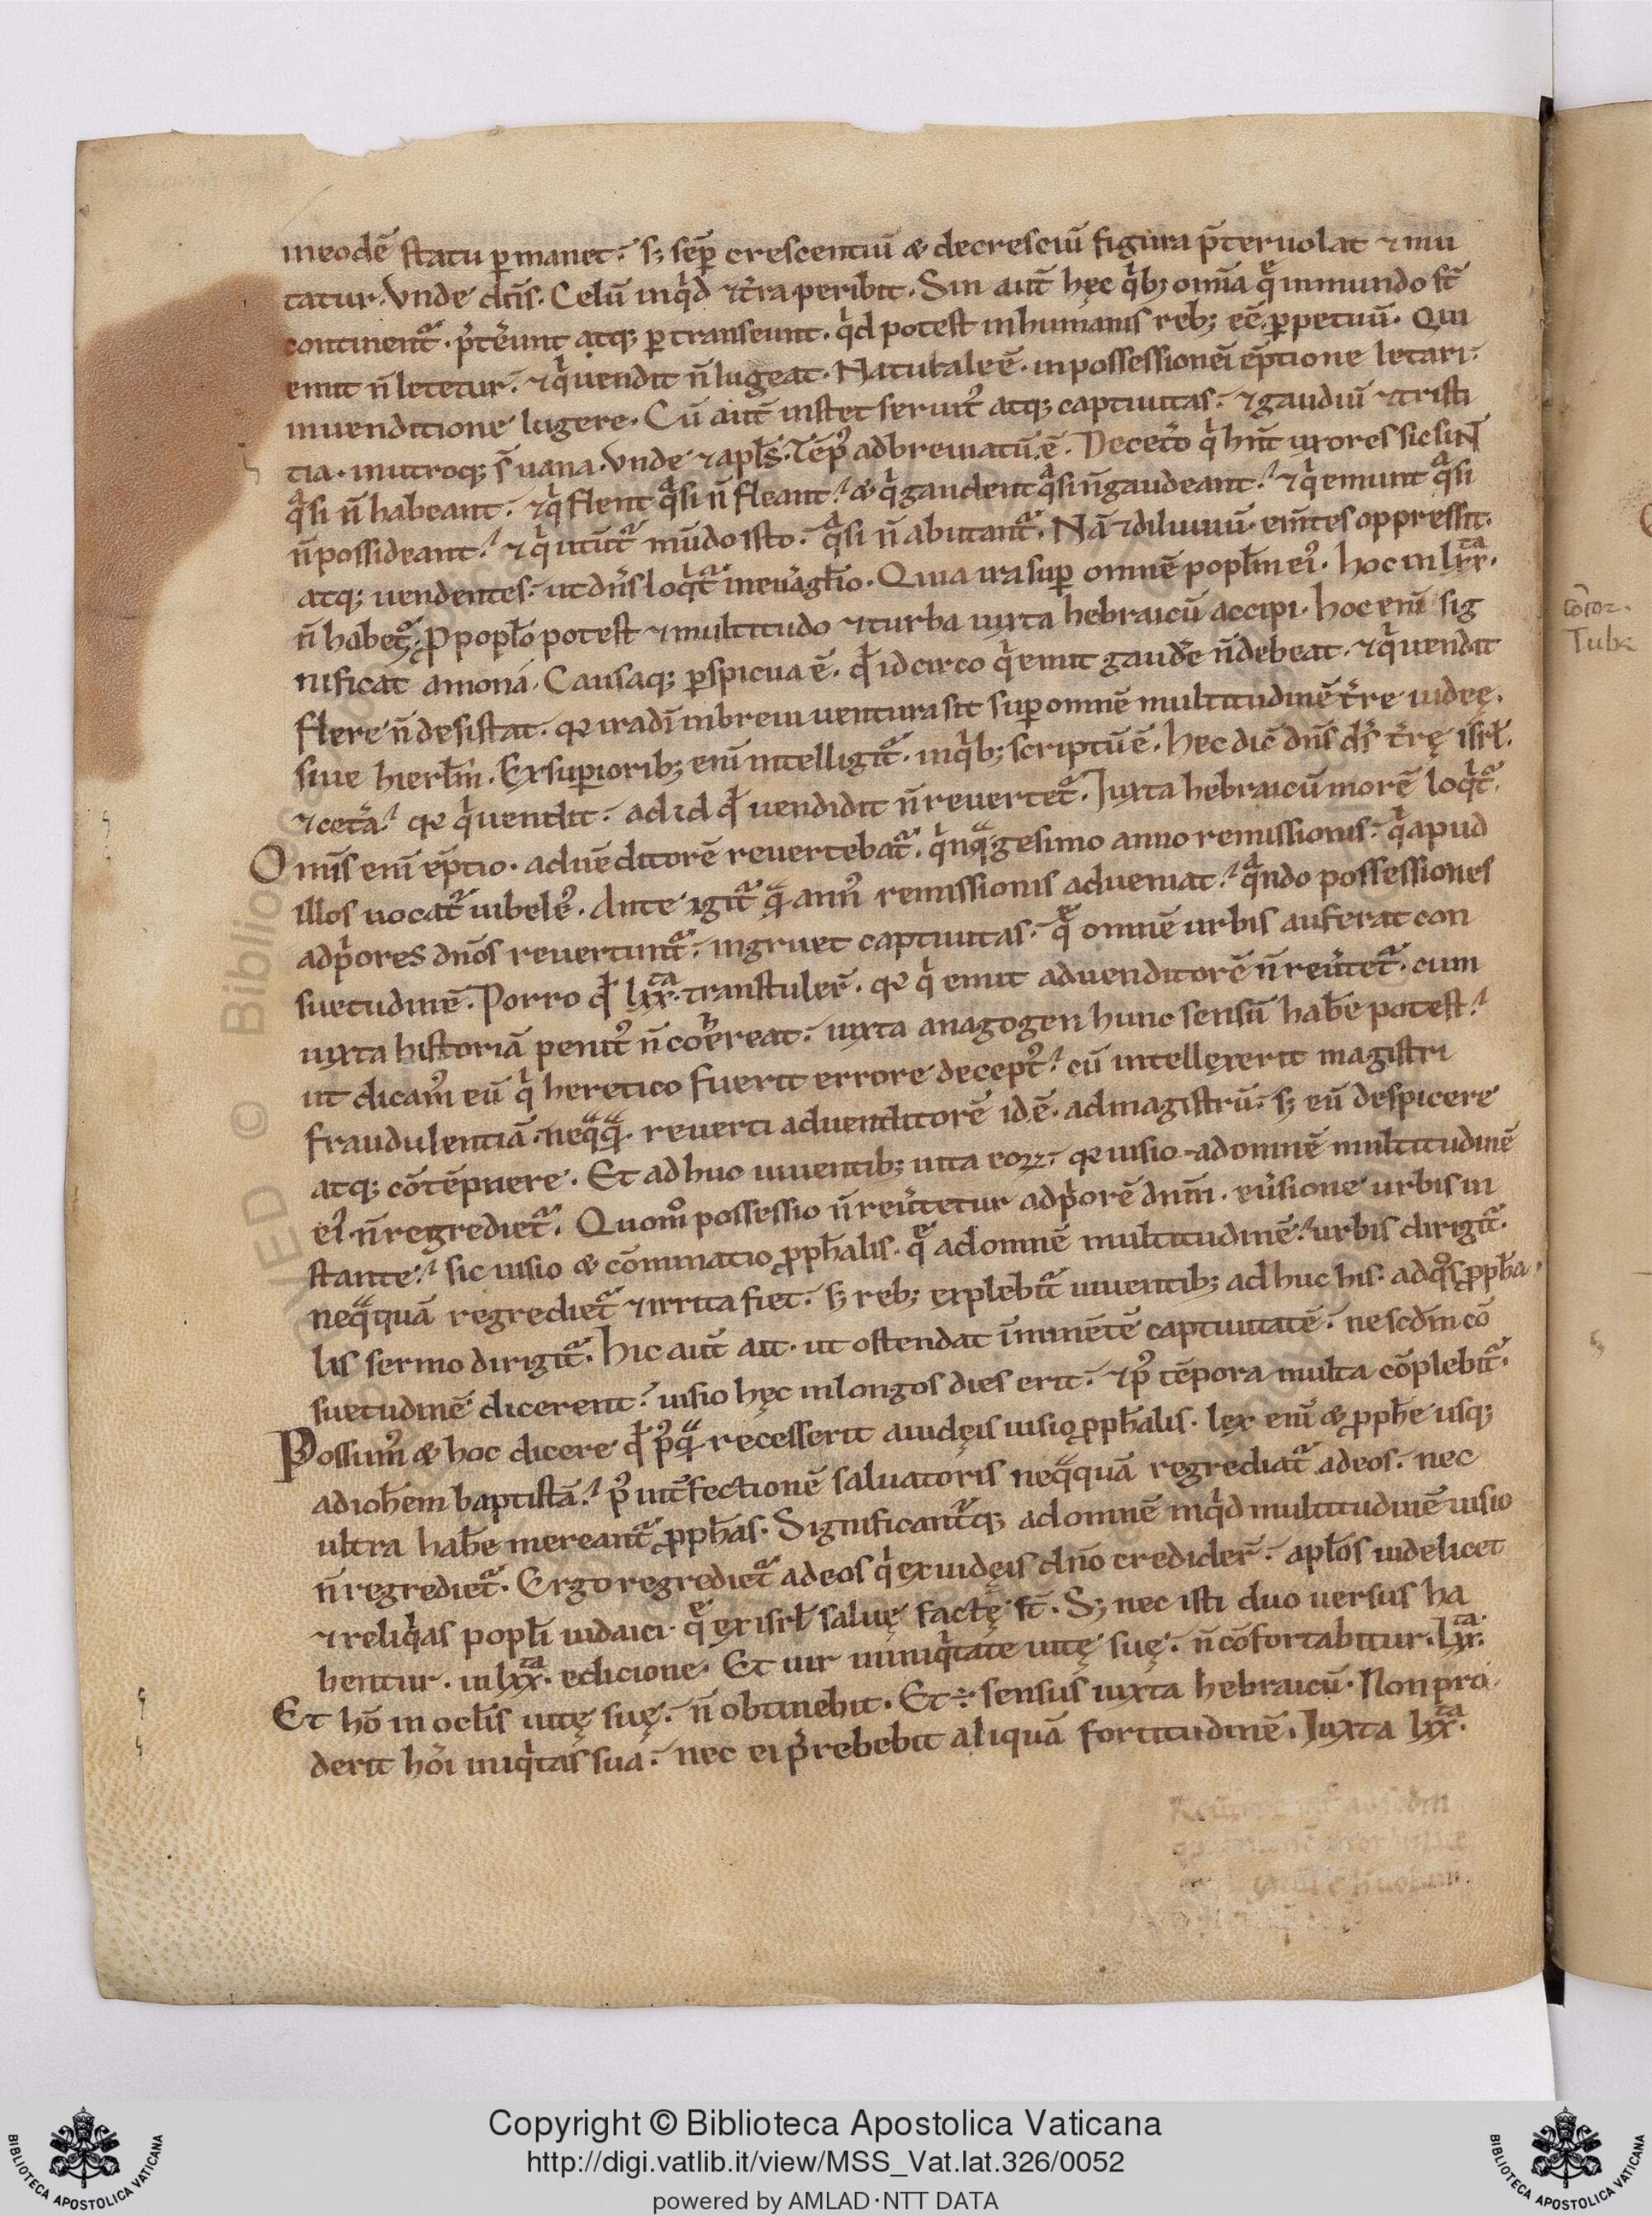 ineodē statu ꝑmanet. sꝫ sēꝑ crescentiū & decresciū figura p̄teruolat ⁊ mu
tatur. Vnde dt̄is. Celū inqͥd ⁊ t̄ra peribit. Sin aut̄ hęc qͥbꝫ omīa q̄ inmundo st̄
continent̄. p̄tēunt atqꝫ ꝑtranseunt. qͥd potest inhumanis rebꝫ ēē ꝑpetuū. Qui
emit n̄ letetur. ⁊ qͥ uendit n̄ lugeat. Naturale ē. inpossessionēi ēptione letari.
inuenditione lugere. Cū aut̄ instet seruit᷒ atqꝫ captiuitas. ⁊ gaudiū ⁊ tristi
tia. inutroqꝫ s̄ uana. Vnde ⁊ apl̄s. Tēp᷒ adbreuiatū. ē. Decet̄o qͥ hn̄t uxores sic sint
qͣsi n̄ habeant. ⁊ qͥ flent qͣsi n̄ fleant. & qͥ gaudent qͣsi n̄ gaudeant. ⁊ qͥ emunt qͣsi
n̄ possideant. ⁊ qͥ utūt᷑ mūdo isto. qͣsi n̄ abutant᷑. Nā ⁊ diluuiū. em̄tes oppressit.
atqꝫ uendentes. ut dn̄s loqͥt᷑ ineuāgl̄io. Quia ira suꝑ omnē popl̄m ei᷒. hoc in lxx͞ta.
n̄ habet᷑. P popl̄o potest ⁊ multitudo ⁊ turba iuxta hebraicū accipi. hoc enī sig
nificat amona. Causaqꝫ ꝑspicua ē. qđ idcirco qͥ emit gaudēe n̄ debeat. ⁊ qͥ uendit
flere n̄ desistat. qꝛ ira dī inbreui uentura sit suꝑ omnē multitudinē t̄re iudeę.
siue hierl̄m. Ex suꝑioribꝫ enī intelligit᷑. inqͥbꝫ scriptū ē. hec dic̄ dn̄s ds̄ t̄rę isrl̄.
⁊ cet̄a. qꝛ qͥ uendit. ad id qđ uendidit n̄ reuertet᷑. Iuxta hebraicū morē loqͥt᷑.
Omīs enī ēptio. aduēditorē reuertebat᷑. qͥnqͣgesimo anno remissionis. qͥ apud
illos uocat᷑ iubele᷒. Ante igit᷑ qͣ ann᷒ remissionis adueniat. qͣndo possessiones
adp̄ores dn̄os reuertunt᷑. ingruet captiuitas. q̄ omnē urbis auferat con
suetudinē. Porro qđ lxx͞ta. transtuler̄. qꝛ qͥ emit aduenditorē n̄ reūtet᷑. cum
iuxta historiā penit᷒ n̄ cohereat. iuxta anagogen hunc sensū hab̄e potest.
ut dicam᷒ eū qͥ heretico fuerit errore decept᷒. cū intellexerit magistri
fraudulentiā. neqͣqͣ. reuerti aduenditorē id ē. admagistrū. sꝫ eū despicere
atqꝫ cōtēpnere. Et ad huc uiuentibꝫ uita eoꝝ. qꝛ uisio adomnē multitudinē
ei᷒. n̄ regrediet᷑. Quom̊ possessio n̄ reūtetur adp̄orē dnm̄. eūsione urbis in
stante. sic uisio & cōminatio ꝓph̄alis. q̄ adomnē multitudinē. urbis dirigit᷑.
neqͣquā regrediet᷑ ⁊ irrita fiet. sꝫ rebꝫ explebit᷑ uiuentibꝫ ad huc his. adqͦs ꝓph̄a
lis sermo dirigit᷑. hic aut̄ ait. ut ostendat īminētē captiuitatē. ne scdm̄ cō
suetudinē dicerent. uisio hęc inlongos dies erit. ⁊ p᷒ tēpora multa cōplebit᷑.
Possum᷒ & hoc dicere qđ p᷒qͣ recesserit aiudęis uisio ꝓph̄alis. lex enī & ꝓph̄e usqꝫ
adioh̄em baptistā. p᷒ int̄fectionē saluatoris neqͣquā regrediat᷑ adeos. nec
ultra hab̄e mereant᷑ ꝓph̄as. Significant᷑qꝫ adomnē inqͥd multitudinē uisio
n̄ regrediet᷑. Ergo regrediet᷑ adeos qͥ exiudęis dn̄o credider̄. apl̄os uidelicet
⁊ reliqͥas popl̄i iudaici. q̄ exisrl̄ saluę factę st̄. Sꝫ nec isti duo uersus ha
bentur. in lxx͞ta. edicione. Et uir ininiqͥtate uitę suę. n̄ cōfortabitur. lxx͞ta.
Et hō in ocl̄is uitę suę. n̄ obtinebit. Et ÷ sensus iuxta hebraicū. Non pro
derit hōi iniqͥtas sua. nec ei p̄rebebit aliquā fortitudinē. Iuxta lxx͞ta.
Tube
Copyright © Biblioteca Apostolica Vaticana
http://digi.vatlib.it/view/MSS_Vat.lat.326/0052
powered by AMLAD·NTT DATA
BIBLIOTECA APOSTOLICA VATICANA
BIBLIOTECA APOSTOLICA VATICANA